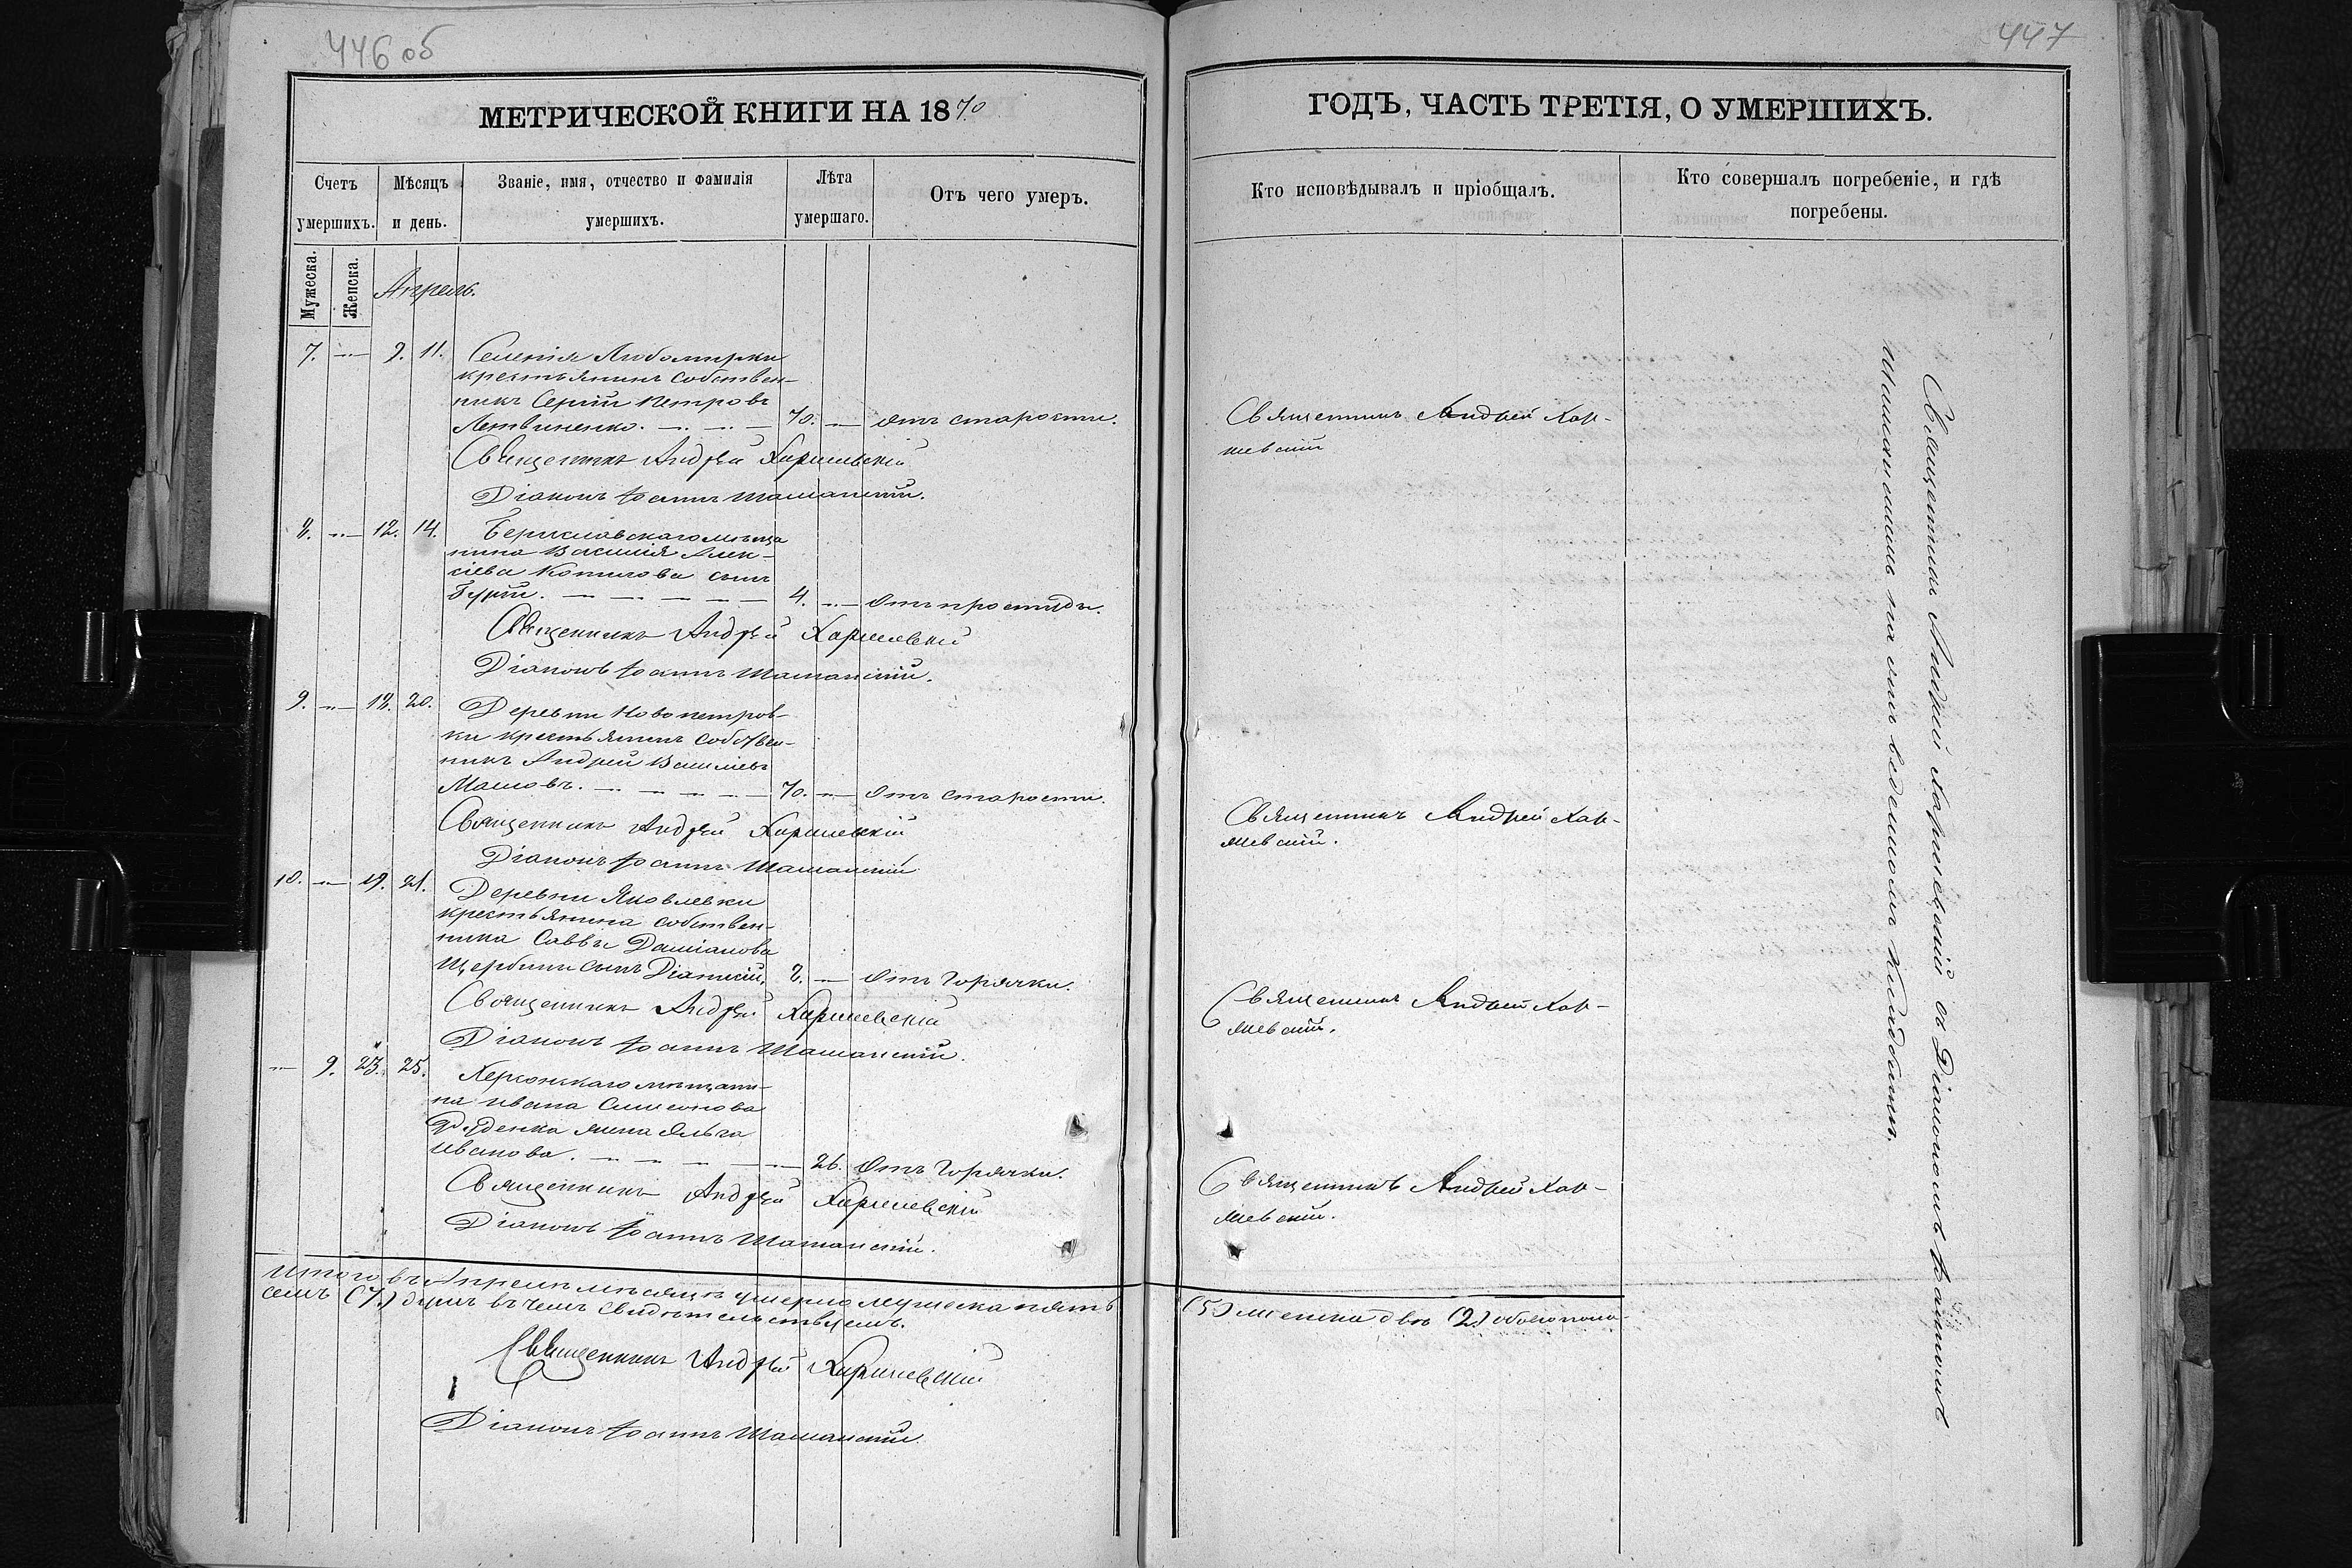 446 об
МЕТРИЧЕСКОЙ КНИГИ НА 1870
Счетъ умершихъ.
Мѣсяцъ и день.
Званіе, имя, отчество и фамилія умершихъ.
Лѣта умершаго.
Отъ чего умеръ.
Мужеска.
Женска.
Апрель.
7. 9. 11. Селенія Любомирки
крестьянинъ собствен-
никъ Сергій Петровъ
Летвиненко. 70. отъ старости.
Священникъ Андрей Каришевскій
Діаконъ Іоаннъ Шаманскій.
8. 12. 14. Бериславскаго мѣща
нина Василія Алек-
сіева Копилова сынъ
Гурій. 4. Отъ простуды.
Священникъ Андрей Каришевскій
Діаконъ Іоаннъ Шаманскій.
9. 18. 20. Деревни Новопетров-
ки крестьянинъ собствен-
никъ Андрей Василіевъ
70. Отъ старости.
Священникъ Андрей Каришевскій
Діаконъ Іоаннъ Шаманскій
10. 19. 21. Деревни Яковлевки
крестьянина собствен-
ника Саввы Даміанова
Щербины сынъ Отъ Горячки.
Священникъ Андрей Каришевскій
Діаконъ Іоаннъ Шаманскій.
9. 23. 25. Херсонскаго мѣщани-
на Ивана Симеонова
жена Ольга
Иванова. 26. Отъ Горячки.
Священникъ Андрей Каришевскій
Діаконъ Іоаннъ Шаманскій.
Итого въ Апрелѣ мѣсяцѣ умерло мужеска пять
семь (7.) душъ въ чемъ свидѣтельствуемъ.
Священникъ Андрей Каришевскій
Діаконъ Іоаннъ Шаманскій.
447
ГОДЪ, ЧАСТЬ ТРЕТІЯ, О УМЕРШИХЪ.
Кто исповѣдывалъ и пріобщалъ.
Кто совершалъ погребеніе, и гдѣ погребены.
Священникъ Андрей Кар-
шевскій
Священникъ Андрей Кар-
шевскій.
Священникъ Андрей Кар-
шевскій.
Священникъ Андрей Кар-
шевскій.
(5) женска двѣ (2.) обоего пола
Священникъ Андрей Каришевскій съ Діакономъ Іоанномъ
Шаманскимъ на кладбищѣ.